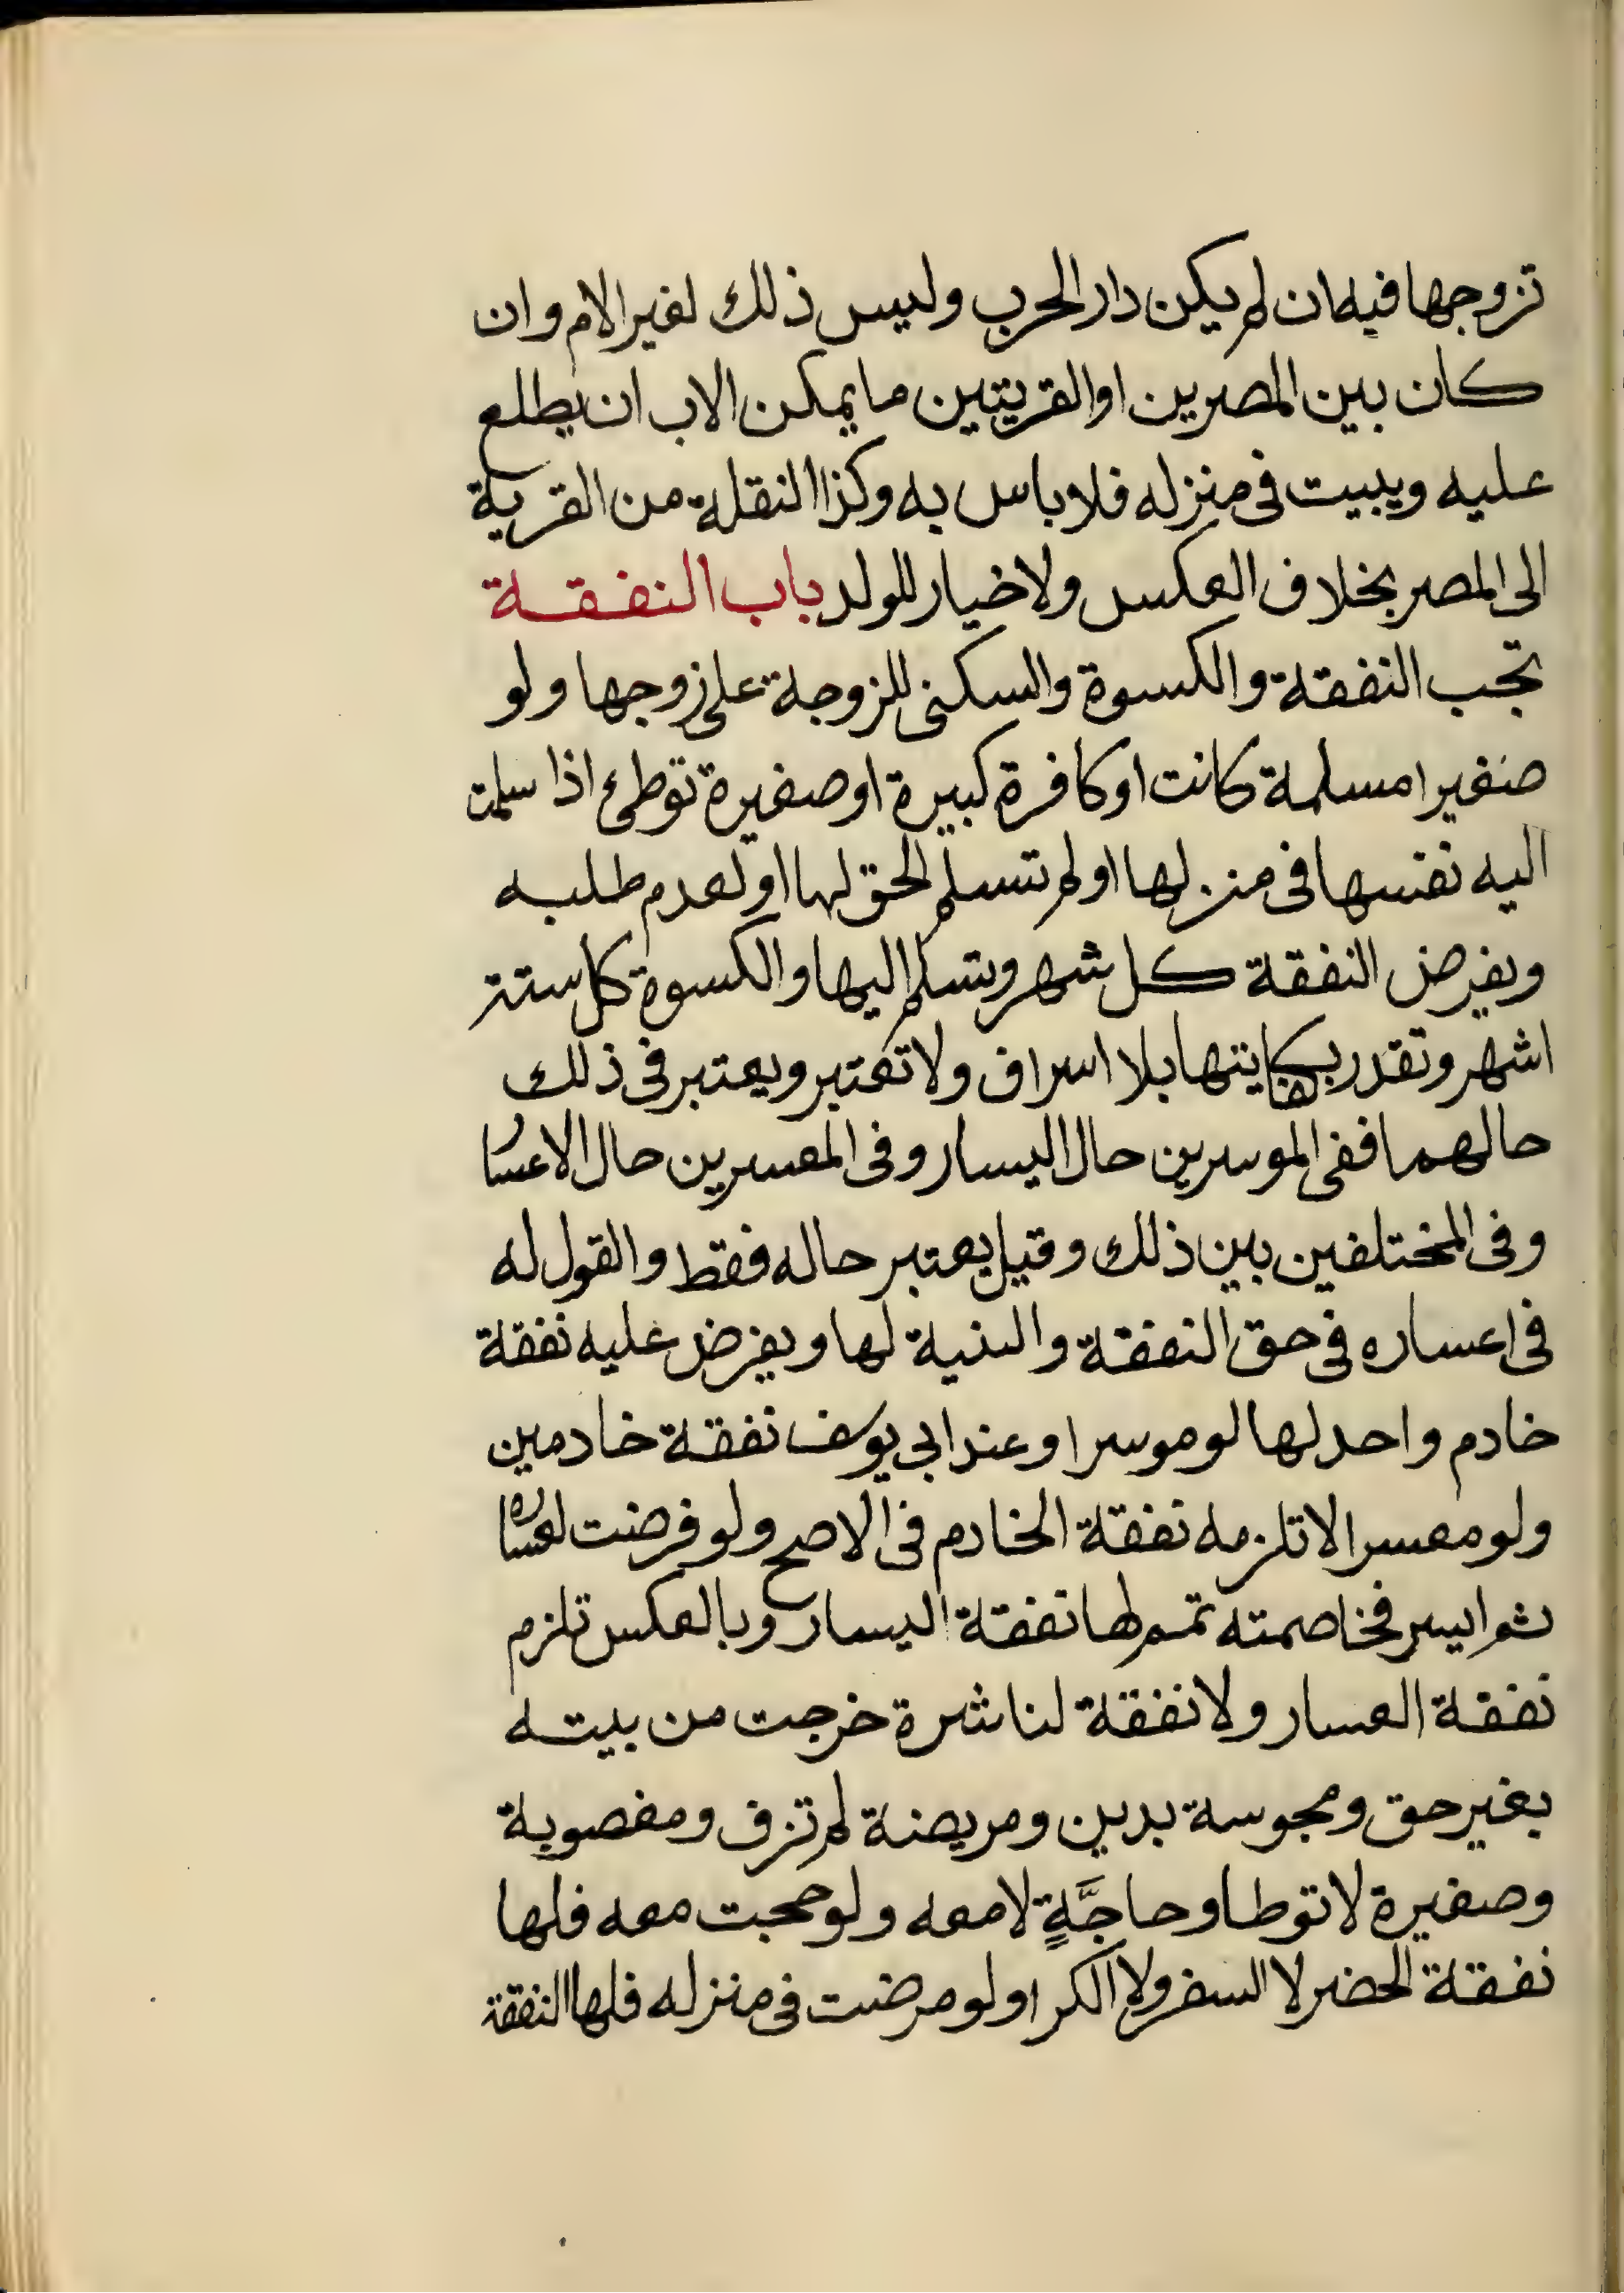 تزوجها فيه ان لم يكن دار الحرب وليس ذلك لغير الام وان
كان بين المصرين او القريتين ما يمكن الاب ان يطلع
عليه ويبيت في منزله فلا باس به وكذا النقلة من القرية
الى المصر بخلاف العكس ولا خيار للولد باب النفقة
تجب النفقة والكسوة والسكنى للزوجة على زوجها ولو
صغيرا مسلمة كانت او كافرة كبيرة او صغيرة توطئ اذا سلمت
اليه نفسها في منزلها او لم تسلم لحق لها او لعدم طلبه
ويفرض النفقة كل شهر وتسلم اليها والكسوة كل ستة
اشهر وتقدر بكفايتها بلا اسراف ولا تقتير ويعتبر في ذلك
حالهما ففي الموسرين حال اليسار وفي المعسرين حال الاعسار
وفي المختلفين بين ذلك وقيل يعتبر حاله فقط والقول له
في اعساره في حق النفقة والبنية لها ويفرض عليه نفقة
خادم واحد لها لو موسرا وعند ابي يوسف نفقة خادمين
ولو معسرا لا تلزمه نفقة الخادم في الاصح ولو فرضت لعساره
ثم ايسر فخاصمته تمم لها نفقة اليسار وبالعكس تلزم
نفقة العسار ولا نفقة لناشرة خرجت من بيته
بغير حق ومجوسة بدين ومريضة لم تزف ومغصوبة
وصغيرة لا توطا وحاجَّةٍ لا معه ولو حجت معه فلها
نفقة الحضر لا السفر ولا الكرا ولو مرضت في منزله فلها النفقة